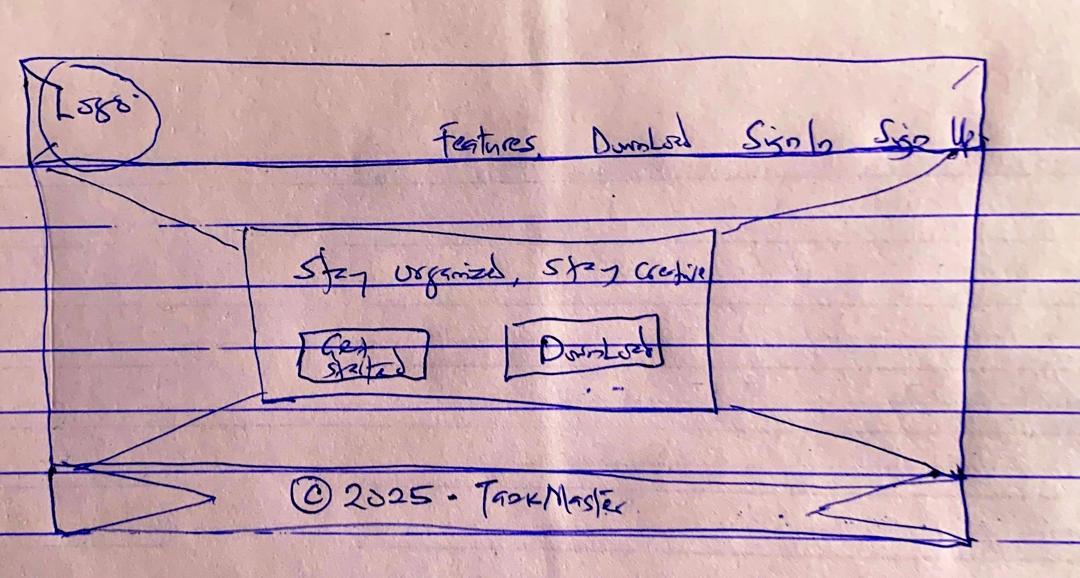 Logo
Features Download Sign In Sign Up
Stay organized, stay creative
Get
started
Download
© 2025 • TaskMaster